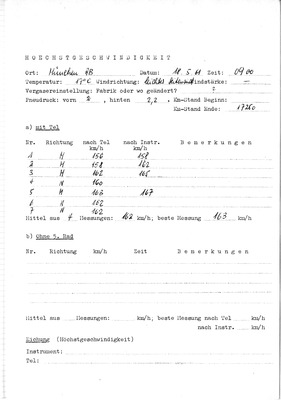 HOECHSTGESCHWINDIGKEIT
Ort: München AB Datum: 18.5.61 Zeit: 0900
Temperatur: 17°C Windrichtung: leichter Windstärke: —
Vergasereinstellung: Fabrik oder wo geändert? ?
Pneudruck: vorn 2 , hinten 2,2 , Km-Stand Beginn:
Km-Stand Ende: 17250
a) mit Tel
Nr. Richtung nach Tel nach Instr. Bemerkungen
km/h km/h
1 N 156 158
2 N 158 162
3 N 162 165
4 N 160
5 N 163 167
6 N 162
7 N 162
Mittel aus 7 Messungen: 162 km/h; beste Messung 163 km/h
b) Ohne 5. Rad
Nr. Richtung km/h Zeit Bemerkungen
Mittel aus Messungen: km/h; beste Messung nach Tel km/h
nach Instr. km/h
Eichung (Höchstgeschwindigkeit)
Instrument:
Tel: